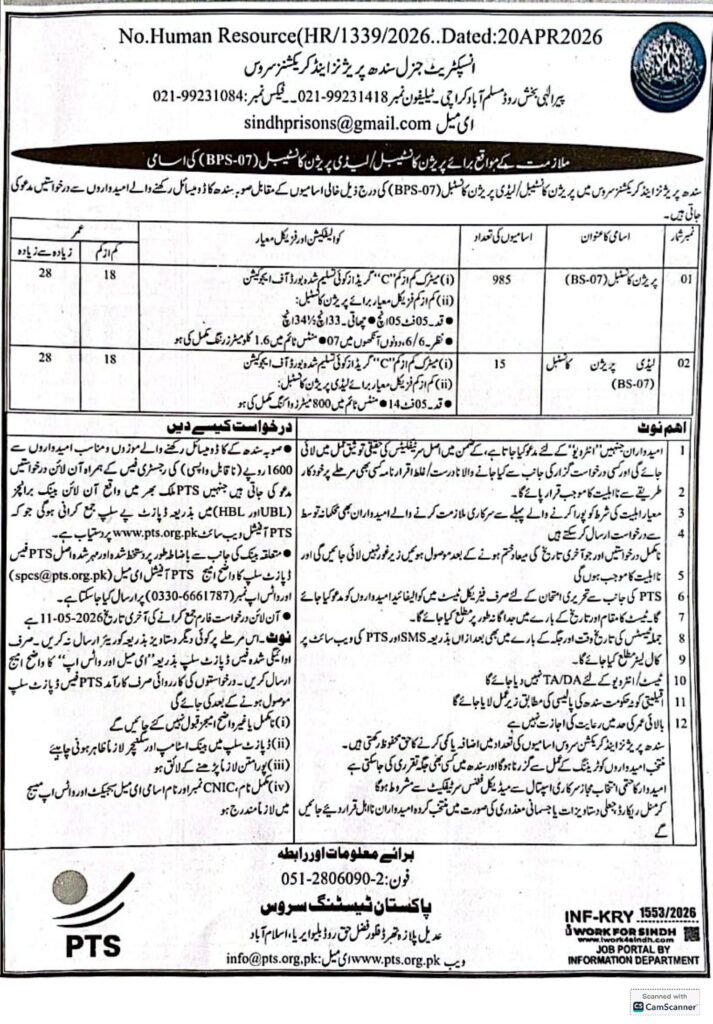 No.Human Resource(HR/1339/2026..Dated:20APR2026
انسپکٹریٹ جنرل سندھ پریژنز اینڈ کریکشنز سروس
پیر الٰہی بخش روڈ مسلم آباد کراچی - ٹیلیفون نمبر 99231418-021 - - فیکس نمبر: 99231084-021
ای میل sindhprisons@gmail.com
ملازمت کے مواقع برائے پریژن کانسٹیبل/لیڈی پریژن کانسٹیبل (BPS-07) کی اسامی
سندھ پریژنز اینڈ کریکشنز سروس میں پریژن کانسٹیبل/لیڈی پریژن کانسٹیبل (BPS-07) کی درج ذیل خالی اسامیوں کے مقابل صوبہ سندھ کا ڈومیسائل رکھنے والے امیدواروں سے درخواستیں مدعو کی
جاتی ہیں۔
نمبر شمار اسامی کا عنوان اسامیوں کی تعداد کوالیفکیشن اور فزیکل معیار عمر
کم از کم زیادہ سے زیادہ
01 پریژن کانسٹیبل (BS-07) 985 (i) میٹرک کم از کم "C" گریڈ از کوئی تسلیم شدہ بورڈ آف ایجوکیشن 18 28
(ii) کم از کم فزیکل معیار برائے پریژن کانسٹیبل:
● قد-05 فٹ 05 انچ ● چھاتی-33 انچ 34½ انچ
● نظر-6/6، دونوں آنکھوں میں ● 07 منٹس ٹائم میں 1.6 کلومیٹر رننگ مکمل کی ہو
02 لیڈی پریژن کانسٹیبل (BS-07) 15 (i) میٹرک کم از کم "C" گریڈ از کوئی تسلیم شدہ بورڈ آف ایجوکیشن 18 28
(ii) کم از کم فزیکل معیار برائے لیڈی پریژن کانسٹیبل:
● قد-05 فٹ ● 14 منٹس ٹائم میں 800 میٹرز واکنگ مکمل کی ہو
اہم نوٹ
1 امیدواران جنہیں "انٹرویو" کے لئے مدعو کیا جاتا ہے، کے ضمن میں اصل سرٹیفکیٹس کی حقیقی توثیق عمل میں لائی
جائے گی اور کسی درخواست گزار کی جانب سے کیا جانے والا نادرست/غلط اقرار نامہ کسی بھی مرحلے پر خودکار
2 طریقے سے نااہلیت کا موجب قرار پائے گا۔
3 معیار اہلیت کی شرط کو پورا کرنے والے پہلے سے سرکاری ملازمت کرنے والے امیدواران بھی محکمانہ توسط
4 سے درخواست ارسال کر سکتے ہیں
نامکمل درخواستیں اور جو آخری تاریخ کی میعاد ختم ہونے کے بعد موصول ہوئیں زیر غور نہیں لائی جائیں گی اور
5 نااہلیت کا موجب ہوں گی
6 PTS کی جانب سے تحریری امتحان کے لئے صرف فزیکل ٹیسٹ میں کوالیفائیڈ امیدواروں کو مدعو کیا جائے
7 گا۔ ٹیسٹ کا مقام اور تاریخ کے بارے میں جداگانہ طور پر مطلع کیا جائے گا۔
8 جملہ ٹیسٹس کی تاریخ وقت اور جگہ کے بارے میں بھی بعد ازاں بذریعہ SMS اور PTS کی ویب سائٹ پر
9 کال لیٹر مطلع کیا جائے گا۔
10 ٹیسٹ/انٹرویو کے لئے TA/DA نہیں دیا جائے گا
11 اقلیتی کوٹہ حکومت سندھ کی پالیسی کے مطابق زیر عمل لایا جائے گا
12 بالائی عمر کی حد میں رعایت کی اجازت نہیں ہے
سندھ پریژنز اینڈ کریکشن سروس اسامیوں کی تعداد میں اضافہ یا کمی کرنے کا حق محفوظ رکھتی ہیں۔
منتخب امیدواروں کو ٹریننگ کے عمل سے گزرنا ہوگا اور سندھ میں کسی بھی جگہ تقرری کی جا سکتی ہے
امیدوار کا حتمی انتخاب مجاز سرکاری اسپتال سے میڈیکل فٹنس سرٹیفکیٹ سے مشروط ہوگا
کرمنل ریکارڈ، جعلی دستاویزات یا جسمانی معذوری کی صورت میں منتخب کردہ امیدواران نااہل قرار دیے جائیں
گے
درخواست کیسے دیں
● صوبہ سندھ کے کا ڈومیسائل رکھنے والے موزوں و مناسب امیدواروں سے
1600 روپے (ناقابل واپسی) کی رجسٹری فیس کے ہمراہ آن لائن درخواستیں
مدعو کی جاتی ہیں جنہیں PTS ملک بھر میں واقع آن لائن بینک برانچز
(UBL اور HBL) میں بذریعہ ڈپازٹ پے سلپ جمع کرانی ہوگی جو کہ
PTS آفیشل ویب سائٹ www.pts.org.pk پر دستیاب ہے۔
● متعلقہ بینک کی جانب سے باضابطہ طور پر دستخط شدہ اور مہر شدہ اصل PTS فیس
ڈپازٹ سلپ کا واضح امیج PTS آفیشل ای میل (spcs@pts.org.pk)
اور واٹس ایپ نمبر (0330-6661787) پر ارسال کیا جا سکتا ہے۔
● آن لائن درخواست فارم جمع کرانے کی آخری تاریخ 11-05-2026 ہے
نوٹ - اس مرحلے پر کوئی دیگر دستاویز بذریعہ کوریئر ارسال نہ کریں۔ صرف
ادائیگی شدہ فیس ڈپازٹ سلپ بذریعہ "ای میل اور واٹس ایپ" کا واضح امیج
ارسال کریں۔ درخواستوں کی کارروائی صرف کارآمد PTS فیس ڈپازٹ سلپ
موصول ہونے کے بعد کی جائے گی
(i) نامکمل یا غیر واضح امیجز قبول نہیں کئے جائیں گے
(ii) ڈپازٹ سلپ میں بینک اسٹامپ اور سگنیچر لازماً ظاہر ہونی چاہئے
(iii) پورا متن لازماً پڑھنے کے لائق ہو
(iv) مکمل نام، CNIC نمبر اور نام اسامی ای میل سبجیکٹ اور واٹس ایپ میسج
میں لازماً مندرج ہو
برائے معلومات اور رابطہ
فون: 2-2806090-051
پاکستان ٹیسٹنگ سروس
عدیل پلازہ تھرڈ فلور فضل حق روڈ بلیو ایریا، اسلام آباد
ویب www.pts.org.pk ای میل: info@pts.org.pk
PTS
INF-KRY 1553/2026
WORK FOR SINDH
www.iwork4sindh.com
JOB PORTAL BY
INFORMATION DEPARTMENT
Scanned with
CS CamScanner